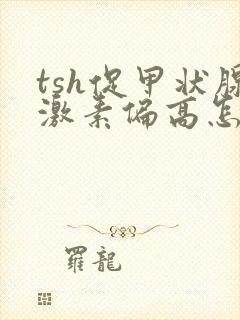 tsh促甲状腺
激素偏高怎
羅龍